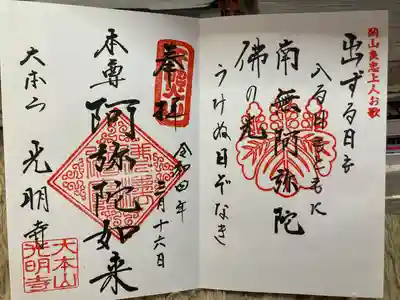 開山良忠上人お歌
出ずる日も
入る日とともに
南無阿弥陀
佛の光
うけぬ日ぞなき
奉拝
令和四年
三月十六日
本尊阿弥陀如来
大本山光明寺
大本山
光明寺